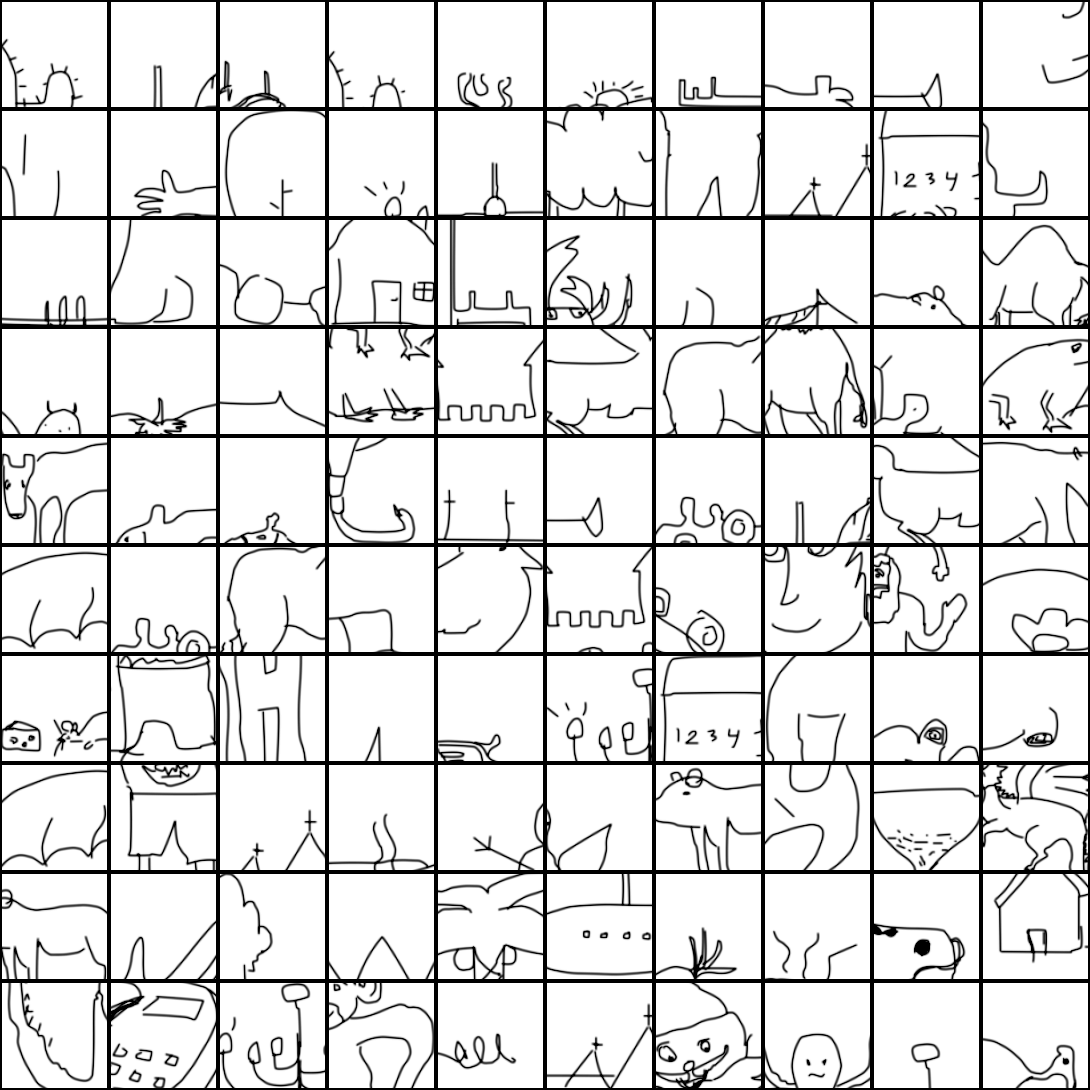 1 2 3 4
1 2 3 4